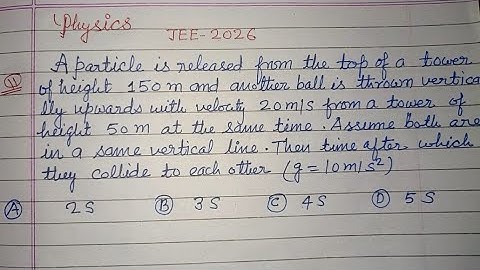 Physics
JEE-2026
11 A particle is released from the top of a tower
of height 150 m and another ball is thrown vertica
lly upwards with velocity 20 m/s from a tower of
height 50 m at the same time. Assume both are
in a same vertical line. Then time after which
they collide to each other (g = 10 m/s²)
A 2 S B 3 S C 4 S D 5 S